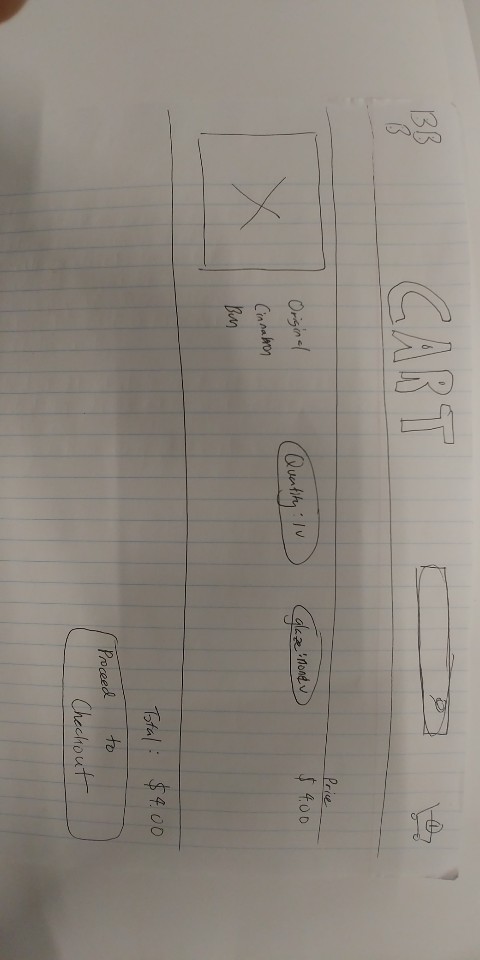 BB
B
CART
1
Price
Original
Cinnamon
Bun
Quantity: 1v
glaze: none v
$ 4.00
Total: $4.00
Proceed to
Checkout